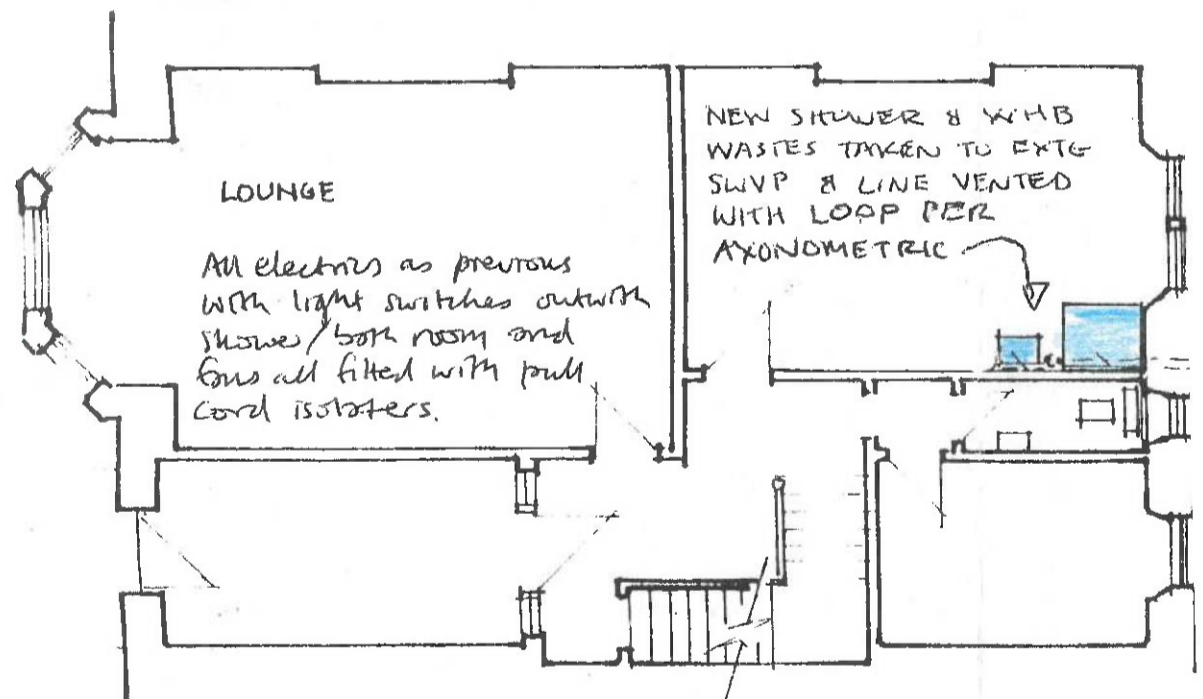 LOUNGE
All electrics as previous
with light switches outwith
shower/bath room and
fans all fitted with pull
cord isolaters.
NEW SHOWER & WHB
WASTES TAKEN TO EXTG
SWVP & LINE VENTED
WITH LOOP PER
AXONOMETRIC